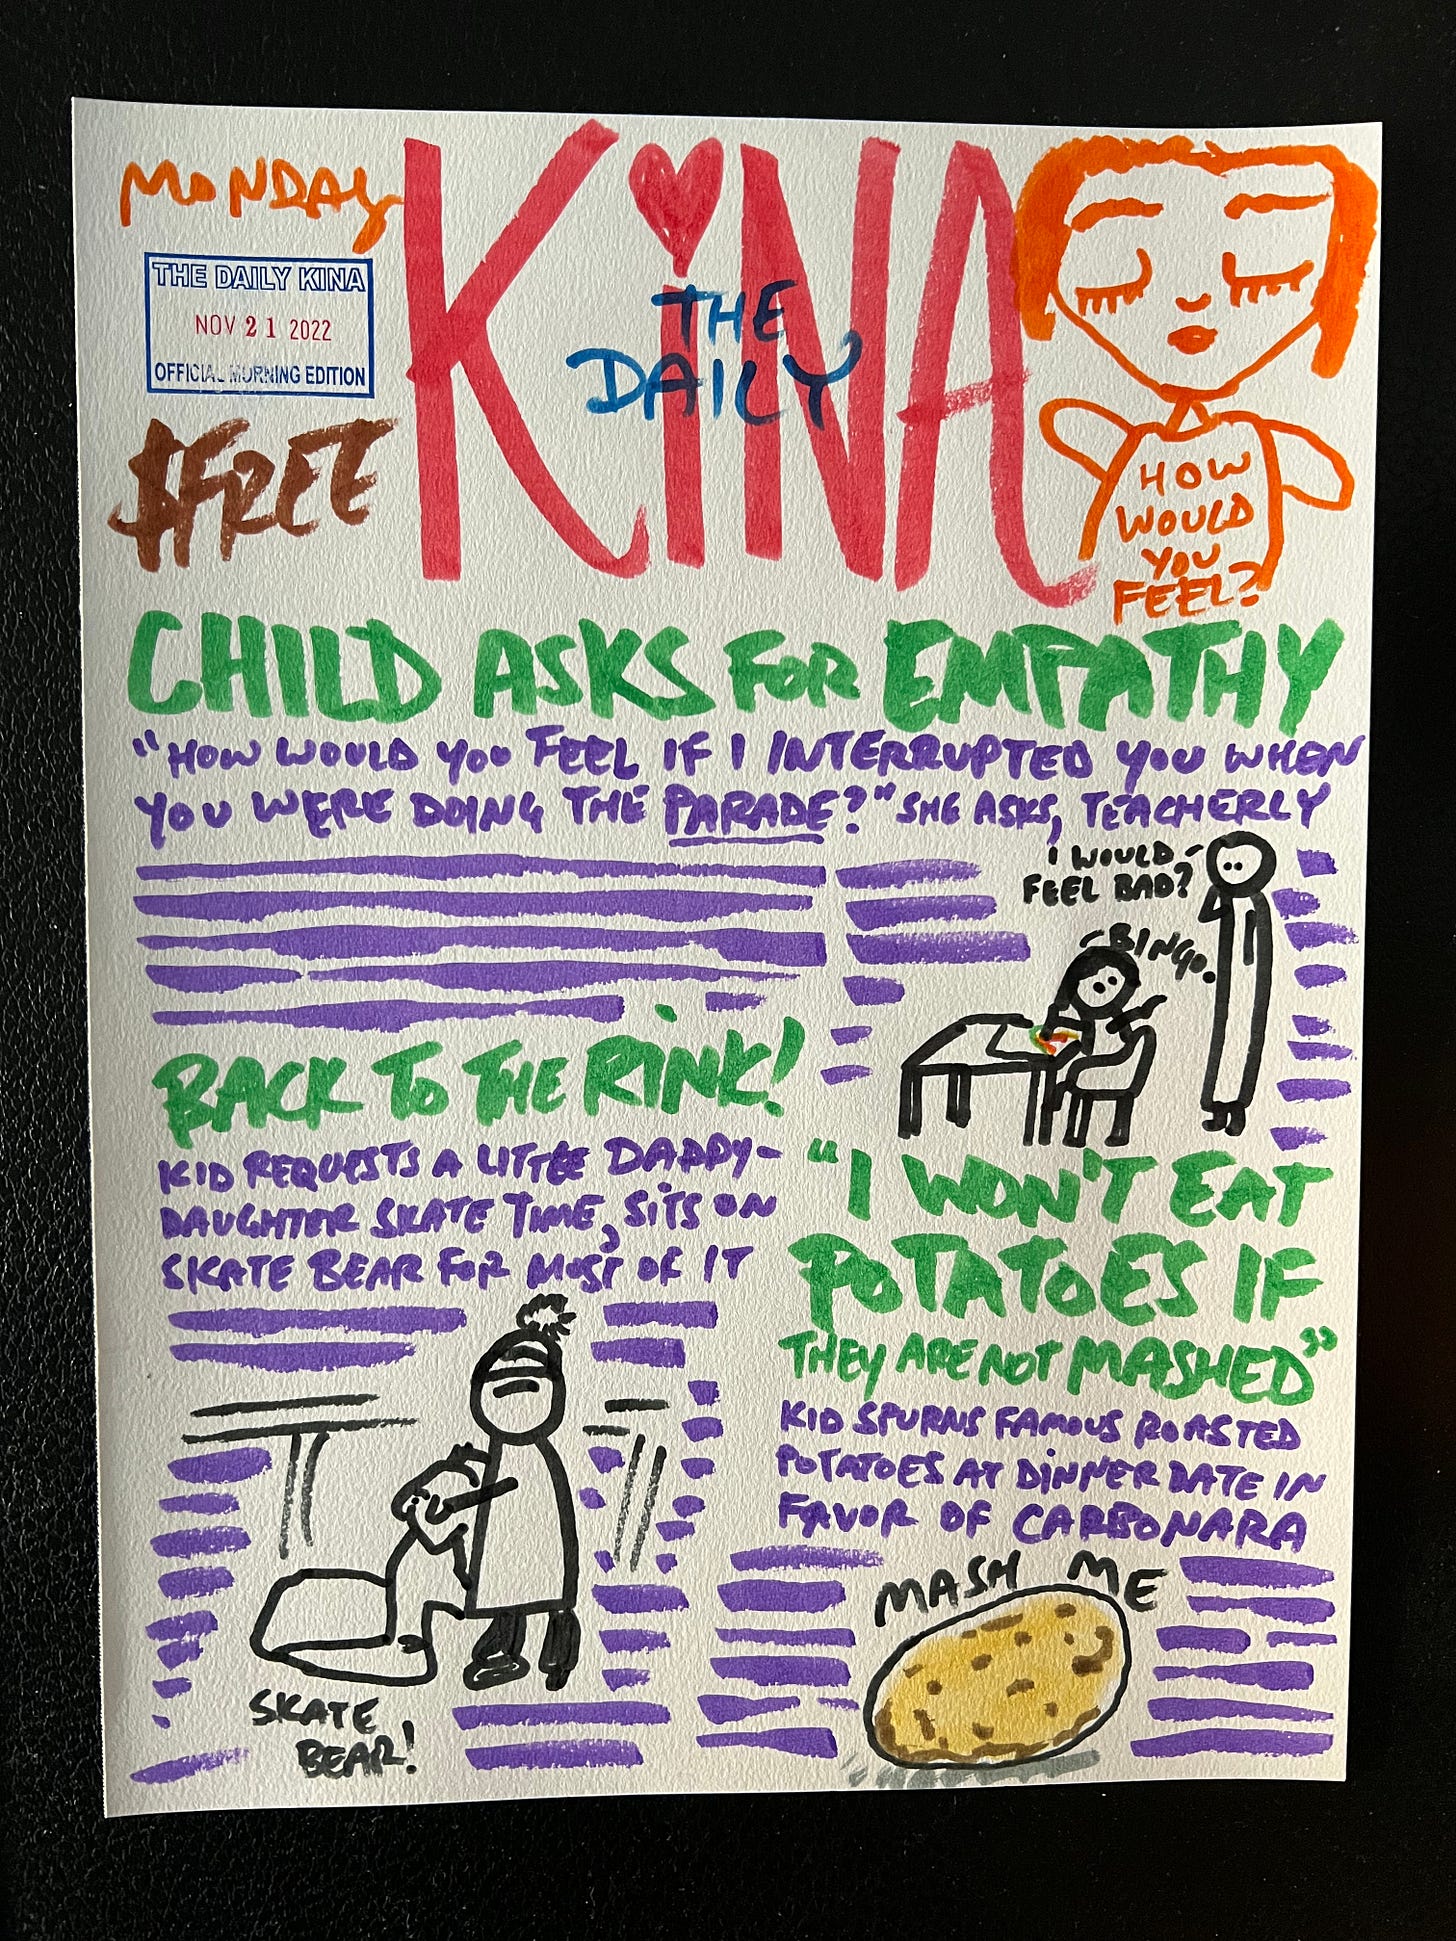 MONDAY
THE DAILY KINA
NOV 21 2022
OFFICIAL MORNING EDITION
$FREE
THE
DAILY
KiNA
HOW
WOULD
YOU
FEEL?
CHILD ASKS FOR EMPATHY
"HOW WOULD YOU FEEL IF I INTERRUPTED YOU WHEN
YOU WERE DOING THE PARADE?" SHE ASKS, TEACHERLY
I WOULD
FEEL BAD?
BINGO.
BACK TO THE RiNK!
KID REQUESTS A LITTLE DADDY-
DAUGHTER SKATE TIME, SiTS ON
SKATE BEAR FOR MOST OF IT
SKATE
BEAR!
"I WON'T EAT
POTATOES IF
THEY ARE NOT MASHED"
KID SPURNS FAMOUS ROASTED
POTATOES AT DiNNER DATE IN
FAVOR OF CARBONARA
MASH ME